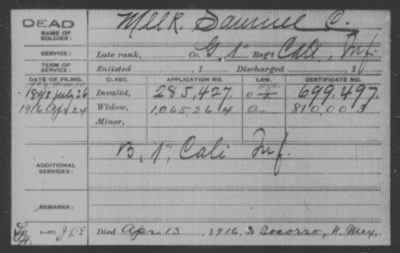 DEAD
NAME OF SOLDIER: Meek. Samuel C.
SERVICE: Late rank, Co. G, 1" Reg't Cali Inf.
TERM OF SERVICE: Enlisted , 1 Discharged , 1
DATE OF FILING. CLASS. APPLICATION NO. LAW. CERTIFICATE NO.
1890 July 26 Invalid, 285,427 699,497.
1916 Apr 24 Widow, 1,065,264 a 810,003
Minor,
B, 1", Cali Inf.
ADDITIONAL SERVICES:
REMARKS:
Died Apr 13, 1916, Socorro, N. Mex.